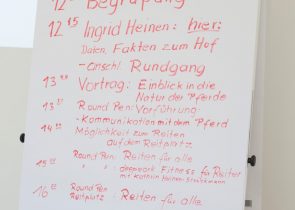 12 Begrüßung
12 15 Ingrid Heinen: hier:
Daten, Fakten zum Hof
- einschl. Rundgang
13 Vortrag: Einblick in die
Natur der Pferde
13 Round Pen: Vorführung:
- Kommunikation mit dem Pferd
14 Möglichkeit zum Reiten
auf dem Reitplatz.
15 Round Pen: Reiten für alle
Fitness für Reiter
mit Kathrin Heinen-
16 Round Pen
Reitplatz: Reiten für alle